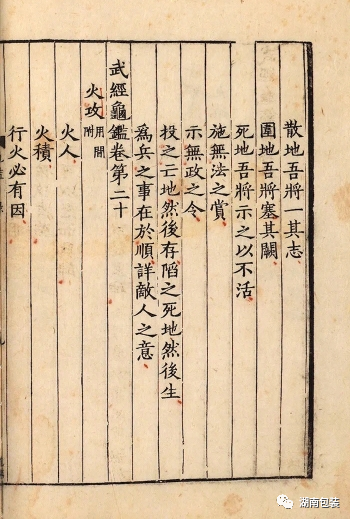 散地吾將一其志
圍地吾將塞其闕
死地吾將示之以不活
施無法之賞
示無政之令
投之亡地然後存陷之死地然後生
爲兵之事在於順詳敵人之意
武經龜鑑卷第二十
火攻用間附
火人
火積
行火必有因
湖南包装